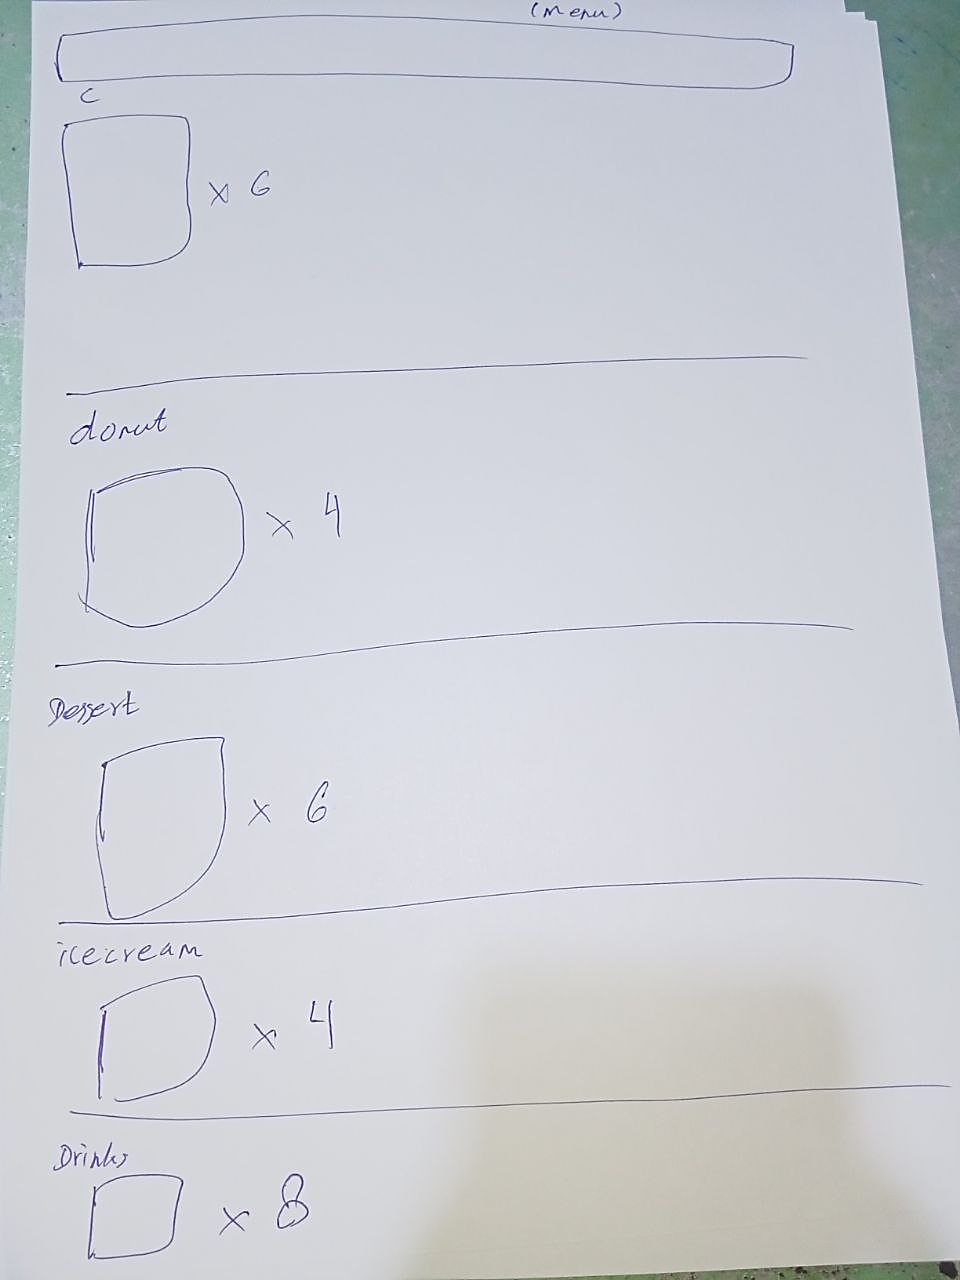 (menu)
C
x 6
donut
x 4
Dessert
x 6
icecream
x 4
Drinks
x 8